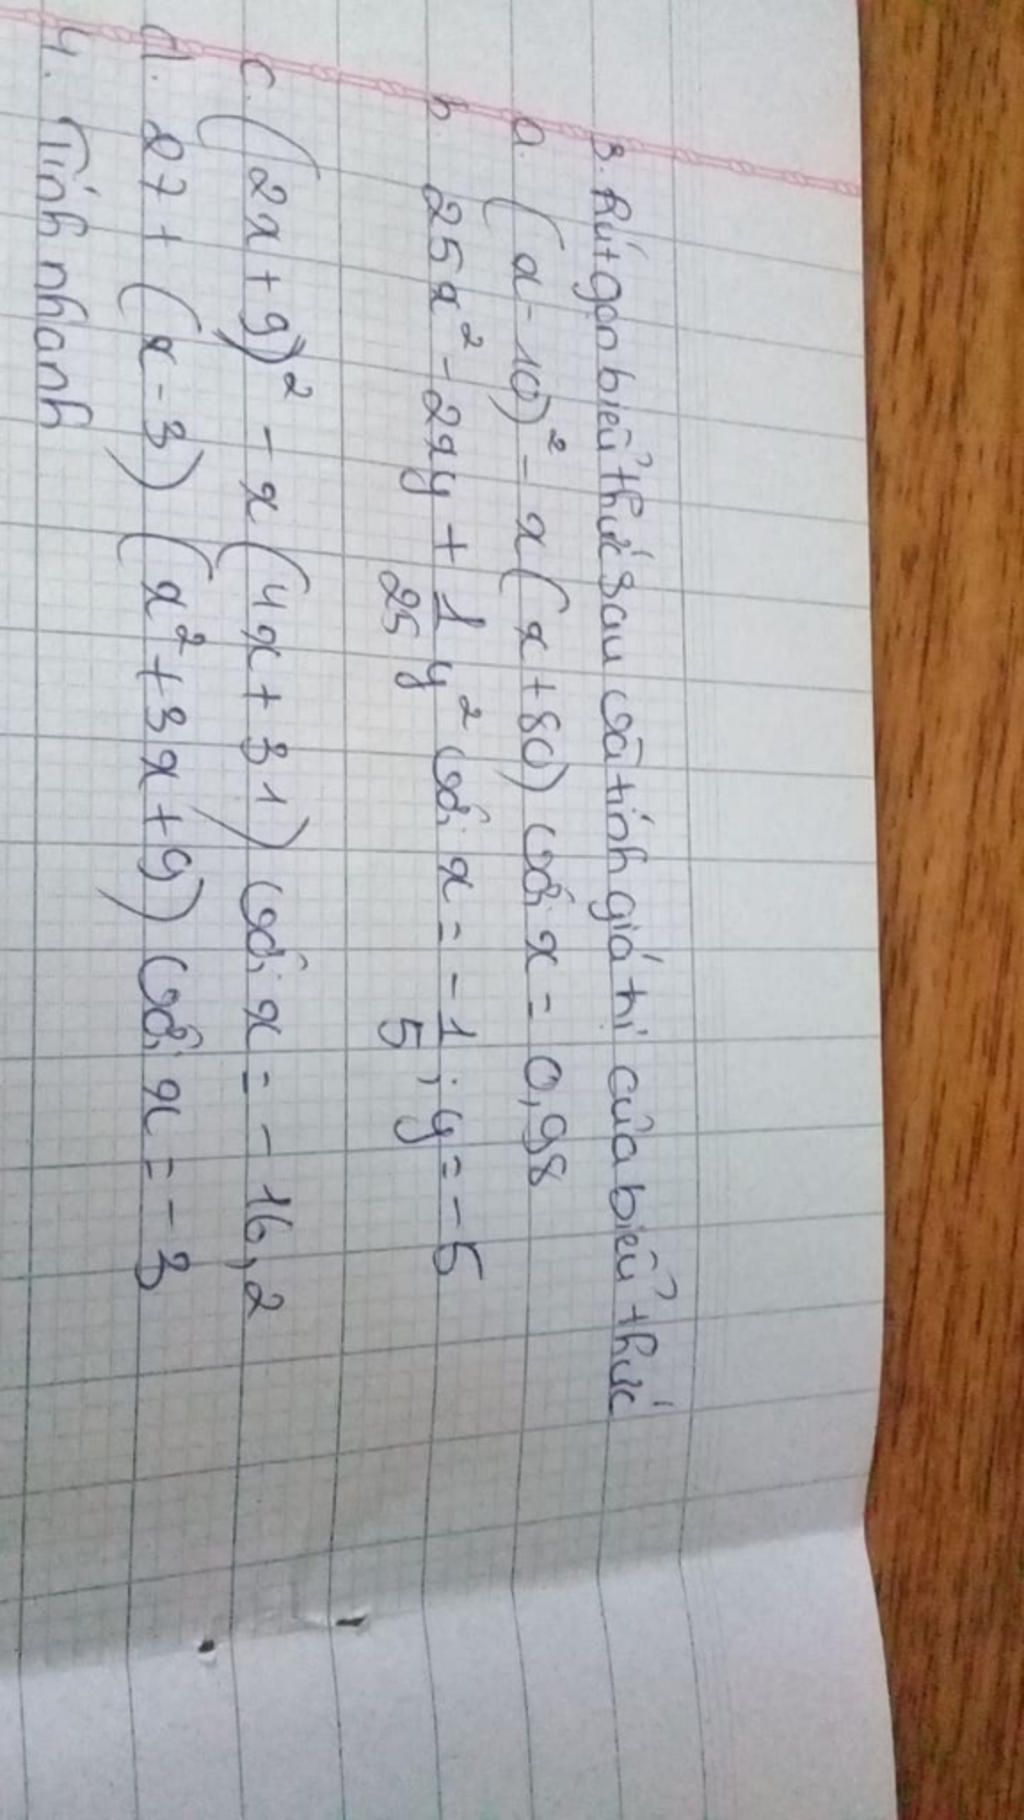 3. Rút gọn biểu thức sau và tính giá trị của biểu thức
a. (x - 10)² - x(x + 80) với x = 0,98
b 25x² - 2xy + 1/25 y² với x = - 1/5 ; y = - 5
c. (2x + 9)² - x(4x + 31) với x = - 16,2
d. 27 + (x - 3) (x² + 3x + 9) với x = - 3
4. Tính nhanh